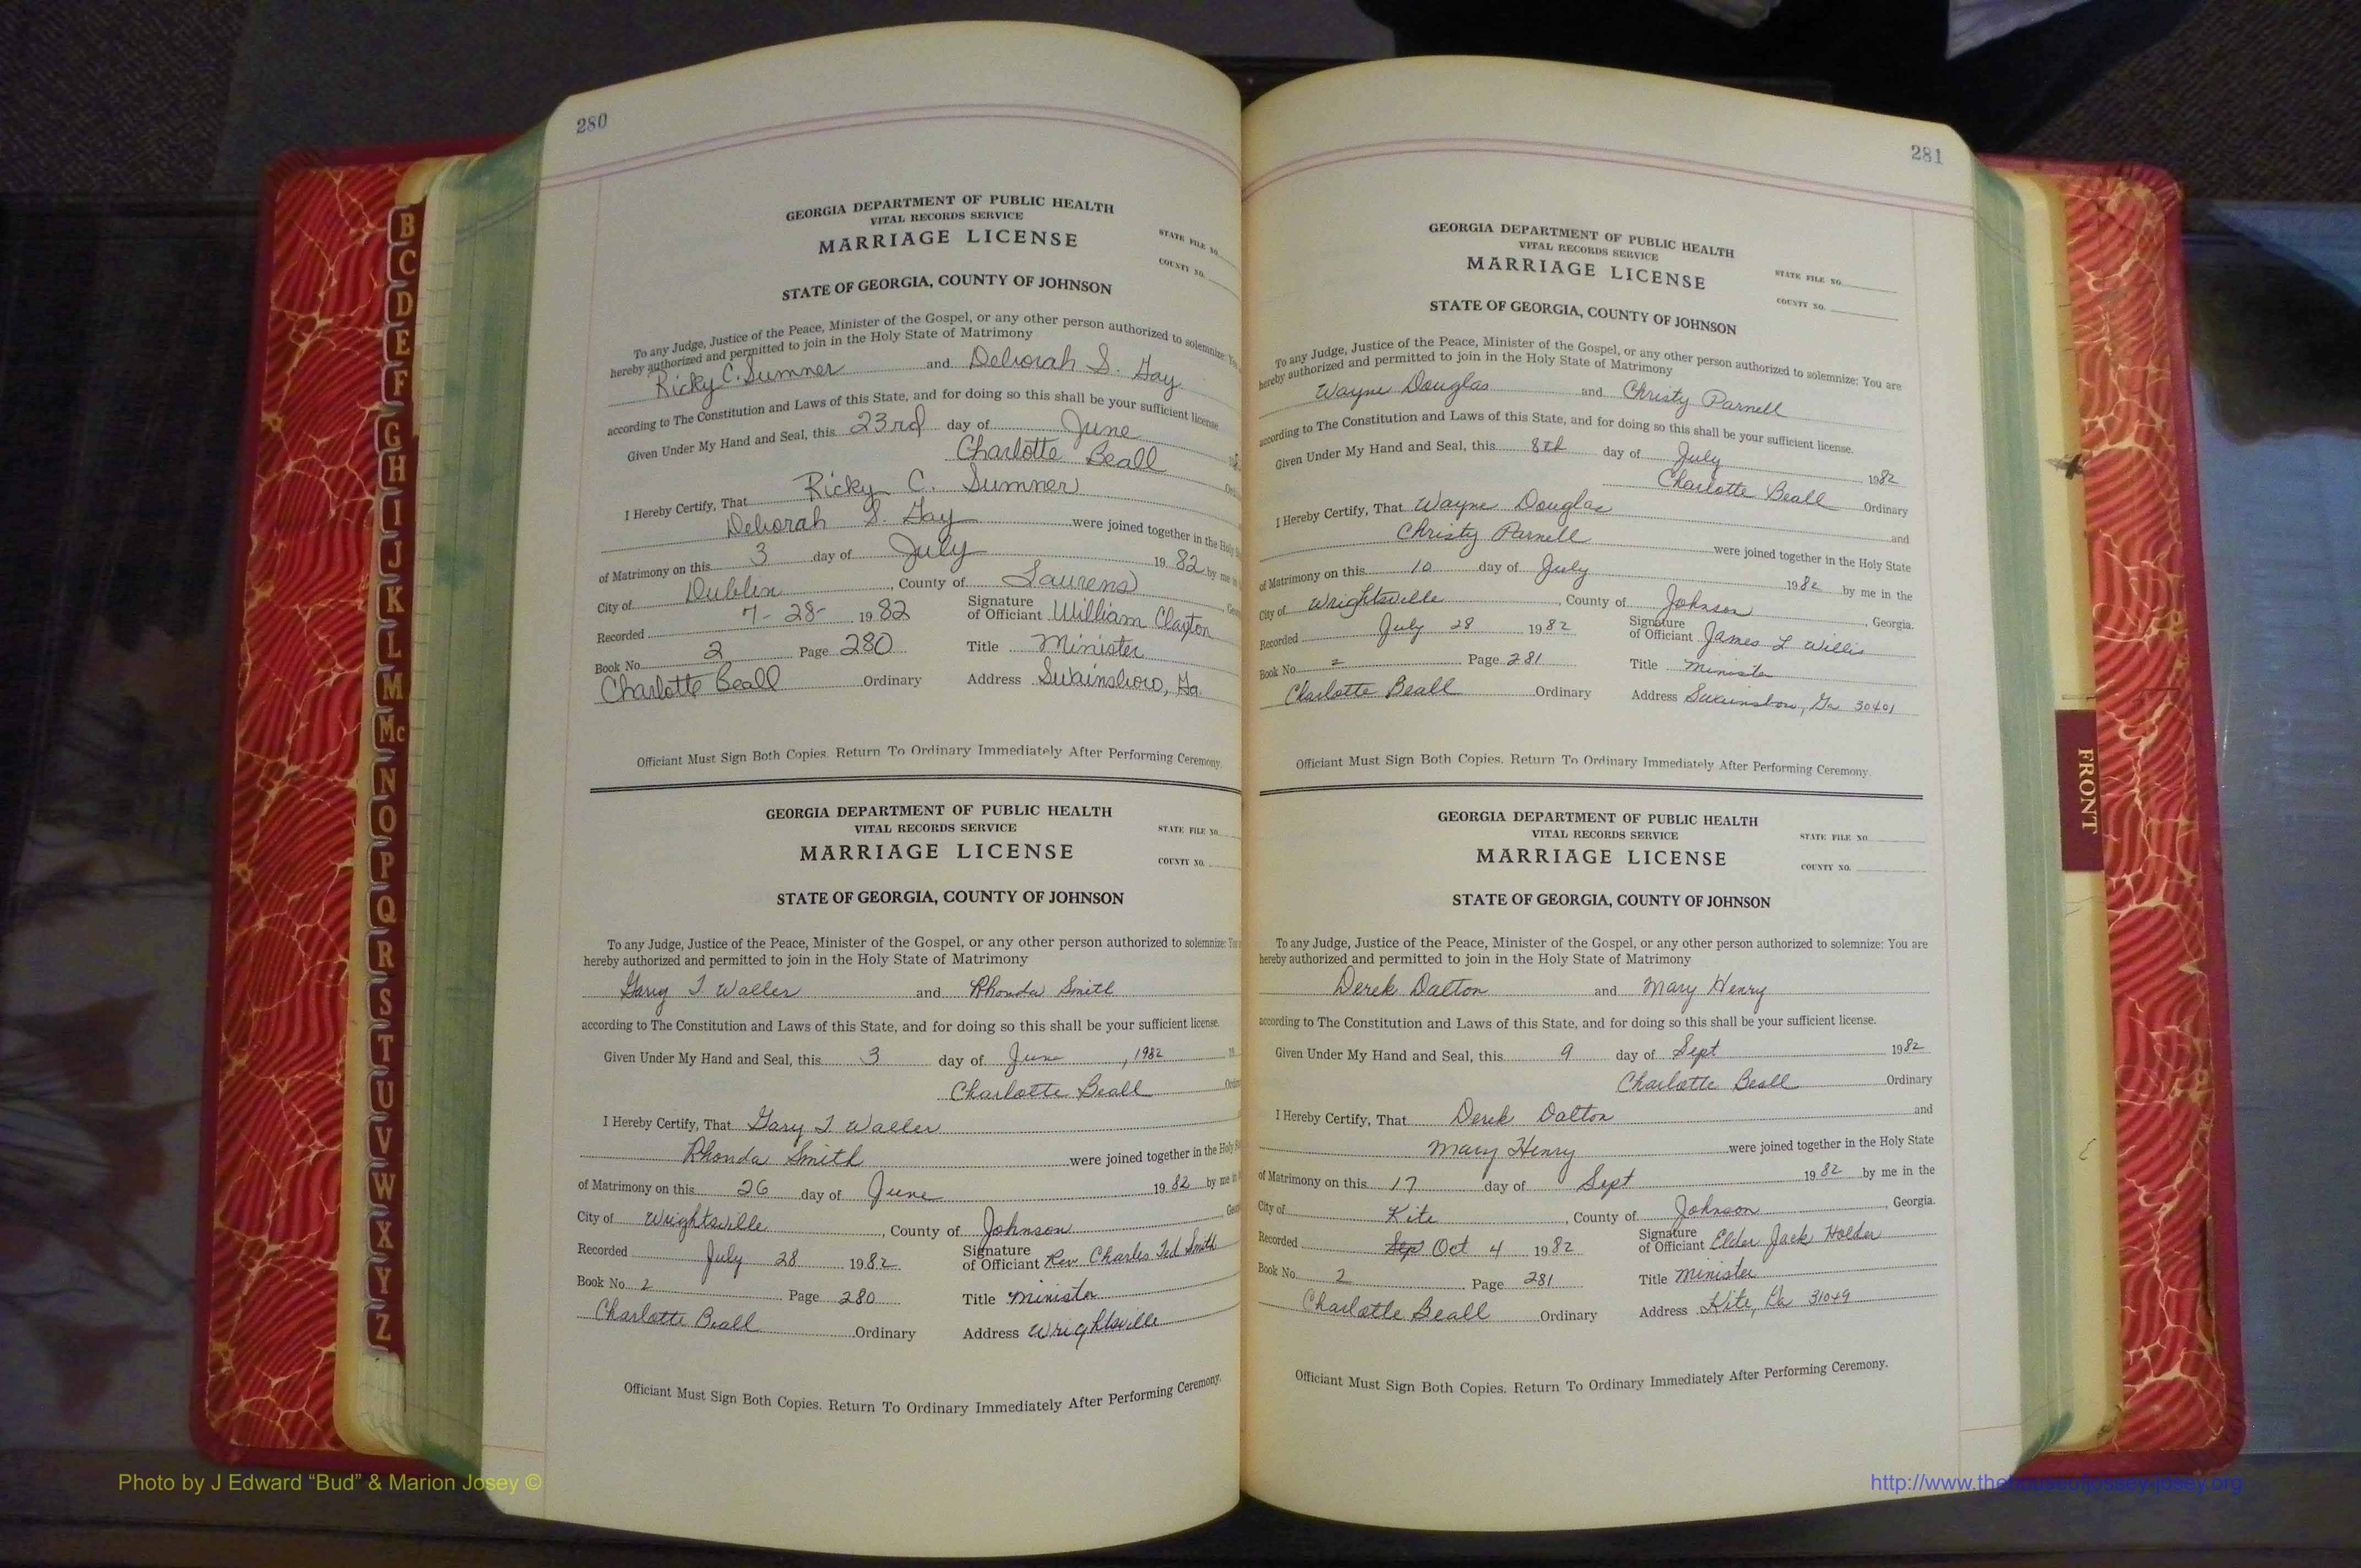 280
GEORGIA DEPARTMENT OF PUBLIC HEALTH
VITAL RECORDS SERVICE
MARRIAGE LICENSE
STATE FILE NO.
COUNTY NO.
STATE OF GEORGIA, COUNTY OF JOHNSON
To any Judge, Justice of the Peace, Minister of the Gospel, or any other person authorized to solemnize:
hereby authorized and permitted to join in the Holy State of Matrimony
Ricky C. Sumner and Deborah S. Gay
according to The Constitution and Laws of this State, and for doing so this shall be your sufficient license.
Given Under My Hand and Seal, this 23rd day of June
Charlotte Beall
I Hereby Certify, That Ricky C. Sumner
Deborah S. Gay were joined together in the Holy
of Matrimony on this 3 day of July 1982 by me in
City of Dublin, County of Laurens
Recorded 7-28- 1982 Signature of Officiant William Clayton
Book No. 2 Page 280 Title Minister
Charlotte Beall Ordinary Address Swainsboro, Ga.
Officiant Must Sign Both Copies. Return To Ordinary Immediately After Performing Ceremony.
GEORGIA DEPARTMENT OF PUBLIC HEALTH
VITAL RECORDS SERVICE
MARRIAGE LICENSE
STATE FILE NO.
COUNTY NO.
STATE OF GEORGIA, COUNTY OF JOHNSON
To any Judge, Justice of the Peace, Minister of the Gospel, or any other person authorized to solemnize:
hereby authorized and permitted to join in the Holy State of Matrimony
Gary T. Waller and Rhonda Smith
according to The Constitution and Laws of this State, and for doing so this shall be your sufficient license.
Given Under My Hand and Seal, this 3 day of June, 1982
Charlotte Beall
I Hereby Certify, That Gary T. Waller
Rhonda Smith were joined together in the Holy
of Matrimony on this 26 day of June 1982 by me in
City of Wrightsville, County of Johnson
Recorded July 28 1982 Signature of Officiant Rev Charles Ted Smith
Book No. 2 Page 280 Title Minister
Charlotte Beall Ordinary Address Wrightsville
Officiant Must Sign Both Copies. Return To Ordinary Immediately After Performing Ceremony.
281
GEORGIA DEPARTMENT OF PUBLIC HEALTH
VITAL RECORDS SERVICE
MARRIAGE LICENSE
STATE FILE NO.
COUNTY NO.
STATE OF GEORGIA, COUNTY OF JOHNSON
To any Judge, Justice of the Peace, Minister of the Gospel, or any other person authorized to solemnize: You are
hereby authorized and permitted to join in the Holy State of Matrimony
Wayne Douglas and Christy Parnell
according to The Constitution and Laws of this State, and for doing so this shall be your sufficient license.
Given Under My Hand and Seal, this 8th day of July 1982
Charlotte Beall Ordinary
I Hereby Certify, That Wayne Douglas and
Christy Parnell were joined together in the Holy State
of Matrimony on this 10 day of July 1982 by me in the
City of Wrightsville, County of Johnson, Georgia.
Recorded July 28 1982 Signature of Officiant James L Willis
Book No. 2 Page 281 Title Minister
Charlotte Beall Ordinary Address Swainsboro, Ga 30401
Officiant Must Sign Both Copies. Return To Ordinary Immediately After Performing Ceremony.
GEORGIA DEPARTMENT OF PUBLIC HEALTH
VITAL RECORDS SERVICE
MARRIAGE LICENSE
STATE FILE NO.
COUNTY NO.
STATE OF GEORGIA, COUNTY OF JOHNSON
To any Judge, Justice of the Peace, Minister of the Gospel, or any other person authorized to solemnize: You are
hereby authorized and permitted to join in the Holy State of Matrimony
Derek Dalton and Mary Henry
according to The Constitution and Laws of this State, and for doing so this shall be your sufficient license.
Given Under My Hand and Seal, this 9 day of Sept 1982
Charlotte Beall Ordinary
I Hereby Certify, That Derek Dalton and
Mary Henry were joined together in the Holy State
of Matrimony on this 17 day of Sept 1982 by me in the
City of Kite, County of Johnson, Georgia.
Recorded Sep Oct 4 1982 Signature of Officiant Elder Jack Holder
Book No. 2 Page 281 Title Minister
Charlotte Beall Ordinary Address Kite, Ga 31049
Officiant Must Sign Both Copies. Return To Ordinary Immediately After Performing Ceremony.
B
C
D
E
F
G
H
I
J
K
L
M
Mc
N
O
P
Q
R
S
T
U
V
W
X
Y
Z
FRONT
Photo by J Edward “Bud” & Marion Josey ©
http://www.thehouseofjossey-josey.org